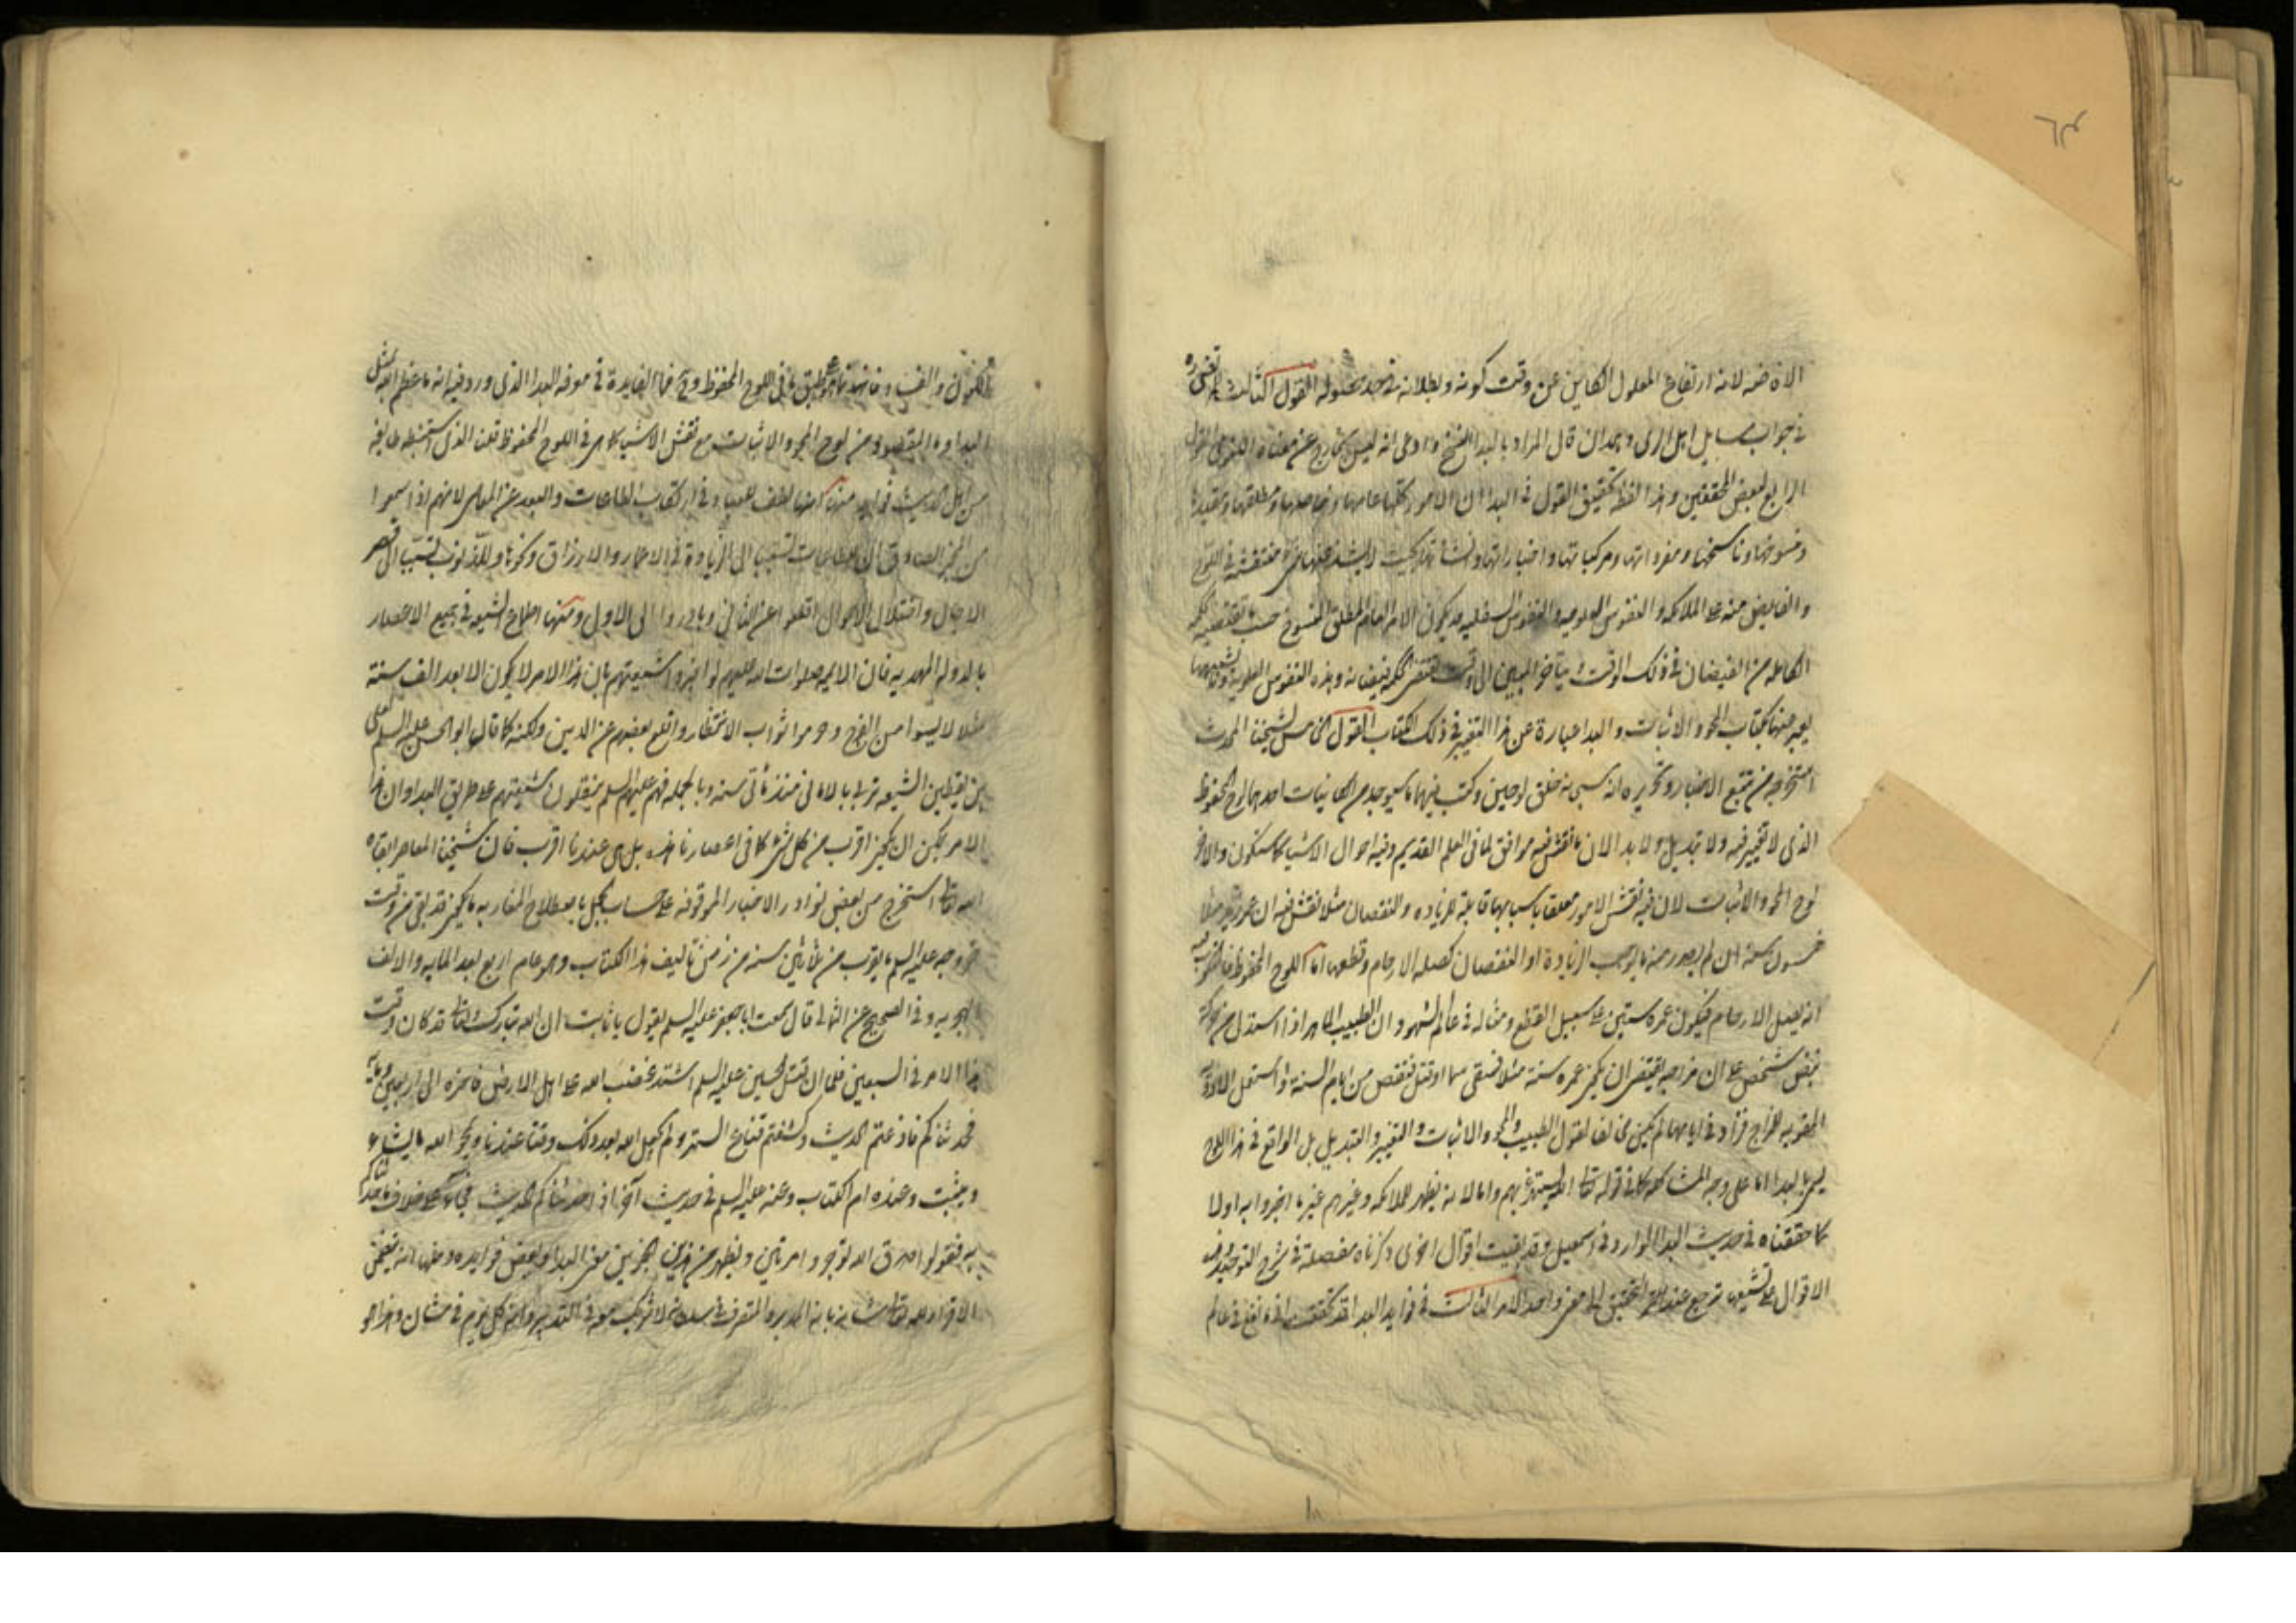 الافاضه لانه ارتفاع المعلول الكاين عن وقت كونه وبطلانه في حد حصوله القول الثالث للمرتضى ره
في جواب مسايل اهل الري وبعد ان قال المراد بالبدا النسخ وادعى انه ليس بخارج عن معناه اللغوي القول
الرابع لبعض المحققين وهذا لفظه تحقيق القول في البدا ان الامور كلها عامها وخاصها ومطلقها ومقيدها
ومنسوخها وناسخها ومفرداتها ومركباتها واخباراتها وانشاآتها بحيث لا يشذ عنها شي منتقشة في اللوح
والفايض منه على الملائكه والنفوس العلويه والنفوس السفليه قد يكون الامر العام المطلق المنسوخ حسب ما تقتضيه الحكمه
الكامله من الفيضان في ذلك الوقت ويتاخر المبين الى وقت تقتضي الحكمه فيضانه وهذه النفوس العلويه وما يشبهها
يعبر عنها بكتاب المحو والاثبات والبدا عبارة عن هذا التغيير في ذلك الكتاب القول الخامس لشيخنا المحدث
استخرجه من تتبع الاخبار وتحريره انه سبحانه خلق لوحين وكتب فيهما ما سيوجد من الكائنات احدهما لوح المحفوظ
الذي لا تغيير فيه ولا تبديل ولا بدا لان ما نقش فيه موافق لما في العلم القديم وفيه احوال الاشيا كما ستكون والاخر
لوح المحو والاثبات لان فيه نقش الامور معلقا باسبابها قابلة للزياده والنقصان مثلا نقش فيه ان عمر زيد مثلا
خمسون سنة ان لم يصدر منه ما يوجب الزيادة او النقصان كصله الارحام وقطعها اما اللوح المحفوظ فالمكتوب فيه
انه يصل الارحام فيكون عمره ستين على سبيل القطع ومثاله في عالم الشهود ان الطبيب الماهر اذا استدل من حركة
نبض شخص على ان مزاجه يقتضي ان يكون عمره سنة مثلا فسقى سما او قتل فنقص من ايام السنة او استعمل الادوية
المقويه للمزاج فزاد في ايامها لم يكن مخالفا لقول الطبيب والمحو والاثبات والتغيير والتبديل بل الواقع في هذا اللوح
يسمى بالبدا اما على وجه المشاكله كما في قوله تعالى الله يستهزئ بهم واما لانه يظهر للملائكه وغيرهم غير ما اخبروا به اولا
كما حققناه في حديث البدا الوارد في اسمعيل وقد بقيت اقوال اخرى ذكرناه مفصلة في شرح التوحيد وهذه
الاقوال على تشعبها ترجع عند التحقيق الى معنى واحد الامر الثالث في فوايد البدا قد تحققت ان في عالم
الكون والفساد فانه يطابق ما في اللوح المحفوظ وح فما الفايدة في معرفه البدا الذي ورد فيه انه ما عظم الله بمثل
البدا وما المقصود من لوح المحو والاثبات مع نقش الاشيا كما هي في اللوح المحفوظ قلت الذي استنبطه طايفه
من اهل الحديث فوايد منها كونها لطف للعباد في ارتكاب الطاعات والبعد عن المعاصي لانهم اذا سمعوا
من المخبر الصادق ان للطاعات تسبب الى الزيادة في الاعمار والارزاق ونحوها وللذنوب تسبب الى قصر
الاجال واختلال الاحوال اقلعوا عن الثاني وبادروا الى الاول ومنها اطماع الشيعه في جميع الاعصار
بالدوله المهديه فان الايمه صلوات الله عليهم لو اخبروا شيعتهم بان هذا الامر لا يكون الا بعد الف سنة
مثلا لايسوا من الفرج وحرموا ثواب الانتظار واقلع بعضهم عن الدين ولكنه كما قال ابو الحسن عليه السلم لعلي
بن يقطين الشيعه تربى بالاماني منذ مأتي سنه وبالجمله فهم عليهم السلم ينقلون لشيعتهم على طريق البدا وان هذا
الامر يمكن ان يكون اقرب من كل شي كما في اعصارنا هذه بل هي عندنا اقرب فان شيخنا المعاصر ابقاه
الله تعالى استخرج من بعض نوادر الاخبار الموقوفه على حساب الجمل باصطلاح المغاربه ما يكون قد بقي من وقت
خروجه عليه السلم ما يقرب من ثلاثين سنه من زمن تاليف هذا الكتاب وهو عام اربع بعد المايه والالف
الهجريه وفي الصحيح عن الثمالي قال سمعت ابا جعفر عليه السلم يقول يا ثابت ان الله تبارك وتعالى قد كان وقت
هذا الامر في السبعين فلما ان قتل الحسين عليه السلم اشتد غضب الله على اهل الارض فاخره الى اربعين ومايه
فحدثناكم فاذعتم الحديث وكشفتم قناع الستر ولم يجعل الله بعد ذلك وقتا عندنا ويمحو الله ما يشاء
ويثبت وعنده ام الكتاب وعنه عليه السلم في حديث آخر اذا حدثناكم الحديث فجاء على خلاف ما حدثناكم
به فقولوا صدق الله تؤجروا مرتين ويظهر من هذين الخبرين معنى البدا وبعض فوايده ومنها انه يتضمن
الاقرار لله تعالى شانه بانه المدبر والمتصرف في سلطانه لا شريك معه في التدبير وانه كل يوم في شان وهذا هو